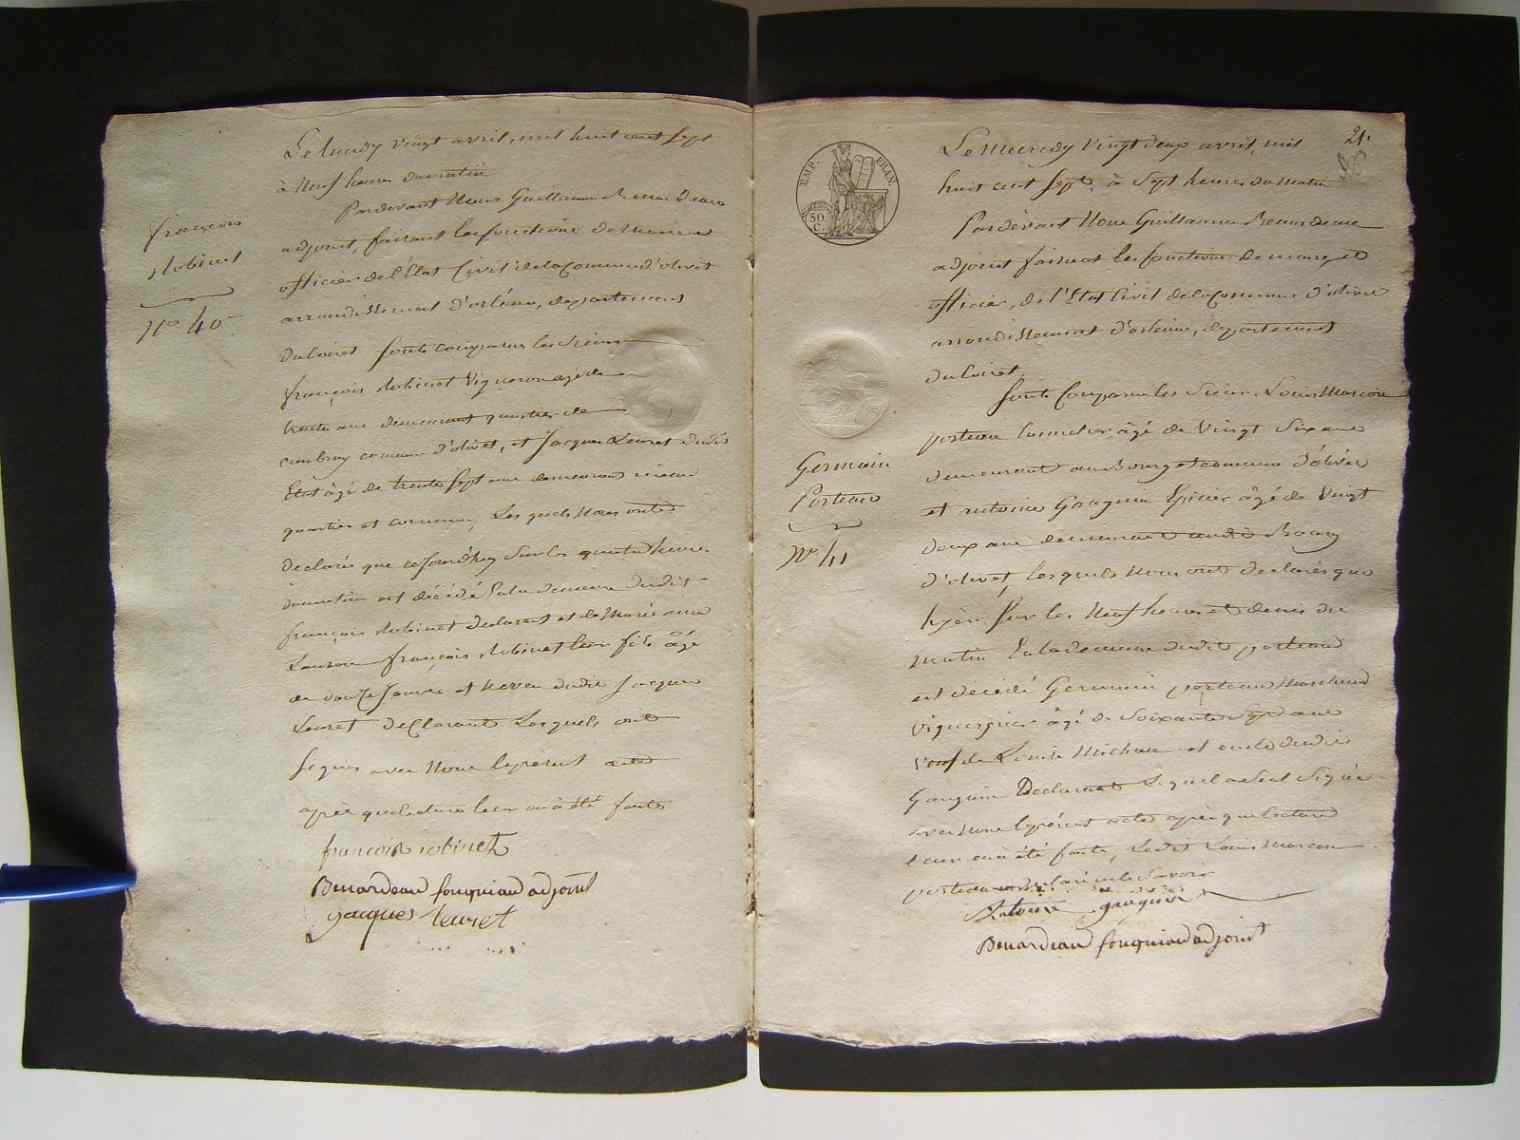 françois
Robinet
N° 40
Le lundy vingt avril, mil huit cent sept
à neuf heures du matin
Pardevant Nous Guillaume
adjoint, faisant les fonctions de maire
officier de l'Etat Civil de la Commune d'olivet
arrondissement d'orléans, departement
du loiret sont comparus les sieurs
françois Robinet Vigneron agé de
trente ans demeurant quartier de
commune d'olivet, et Jacques Leuret dudit
Etat âgé de trente sept ans demeurant même
quartier et commune, Les quels Nous ont
declarés que cejourd'huy sur les quatre heures
du matin est décédé En la demeure dudit
françois Robinet declarant et de Marie anne
françois Robinet leur fils âgé
de jours et neveu dudit Jacques
Leuret declarant Lesquels ont
signé avec Nous le présent acte
après que lecture leur en à été faite
francois robinet
Benardeau fouqueau adjoint
jacques leuret
21.
EMP. FRAN.
50 C.
Germain
Porteau
N° 41
Le Mercredy vingt deux avril, mil
huit cent sept, à sept heures du matin
Pardevant Nous Guillaume
adjoint faisant les fonctions de maire, et
officier, de l'Etat Civil de la Commune d'olivet
arrondissement d'orleans, departement
du loiret.
sont Comparus les sieurs Louis Marcou
porteau tonnelier âgé de Vingt Six ans
demeurant au Bourg et commune d'olivet
et antoine Gauguin Epicier âgé de Vingt
deux ans demeurant audit Bourg
d'olivet, lesquels Nous ont declarés que
hyère sur les Neuf heures et demie du
matin En la demeure dudit porteau
est décédé Germain porteau Marchand
Vinaigrier âgé de Soixante Sept ans
veuf de Louise Michau et oncle dudit
Gauguin Declarant Lequel a Seul Signé
avec Nous le présent acte après que lecture
leur en à été faite, Ledit Louis Marcou
porteau ayant declaré ne le Savoir
Antoine gauguin
Benardeau fouqueau adjoint